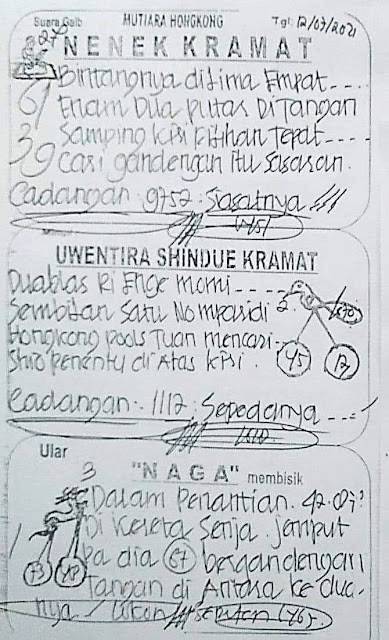 Suara Gaib MUTIARA HONGKONG Tgl: 12/07/2021
"NENEK KRAMAT
Bintangnya di lima Empat
61 Enam Dua putas Di Tangan
Samping kiri pilihan Tepat ----
39 Cari gandengan itu Sasaran.
Cadangan. 9752. Siasatnya
UWENTIRA SHINDUE KRAMAT
Duablas Ri Enge momi -----
Sembilan Satu Nomporidi 2.
Hongkong pools Tuan mencari--
Shio penentu di Atas kiri.
45 12
Cadangan.. 1112. Sepedanya ----
1510
Ular
3 "NAGA" membisik
Dalam Penantian. 42.07?
Di Kereta Senja. jemput
Pa dia 67 bergandengan
Tangan di Antara ke dua-
nya